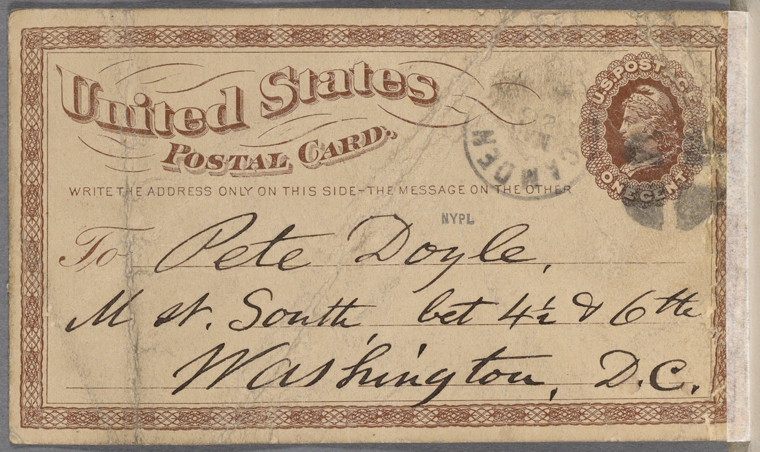 United States
Postal Card.
WRITE THE ADDRESS ONLY ON THIS SIDE–THE MESSAGE ON THE OTHER
U.S. POSTAGE
ONE CENT
CAMDEN
NYPL
To Pete Doyle,
M st. South, bet 4½ & 6th
Washington, D.C.